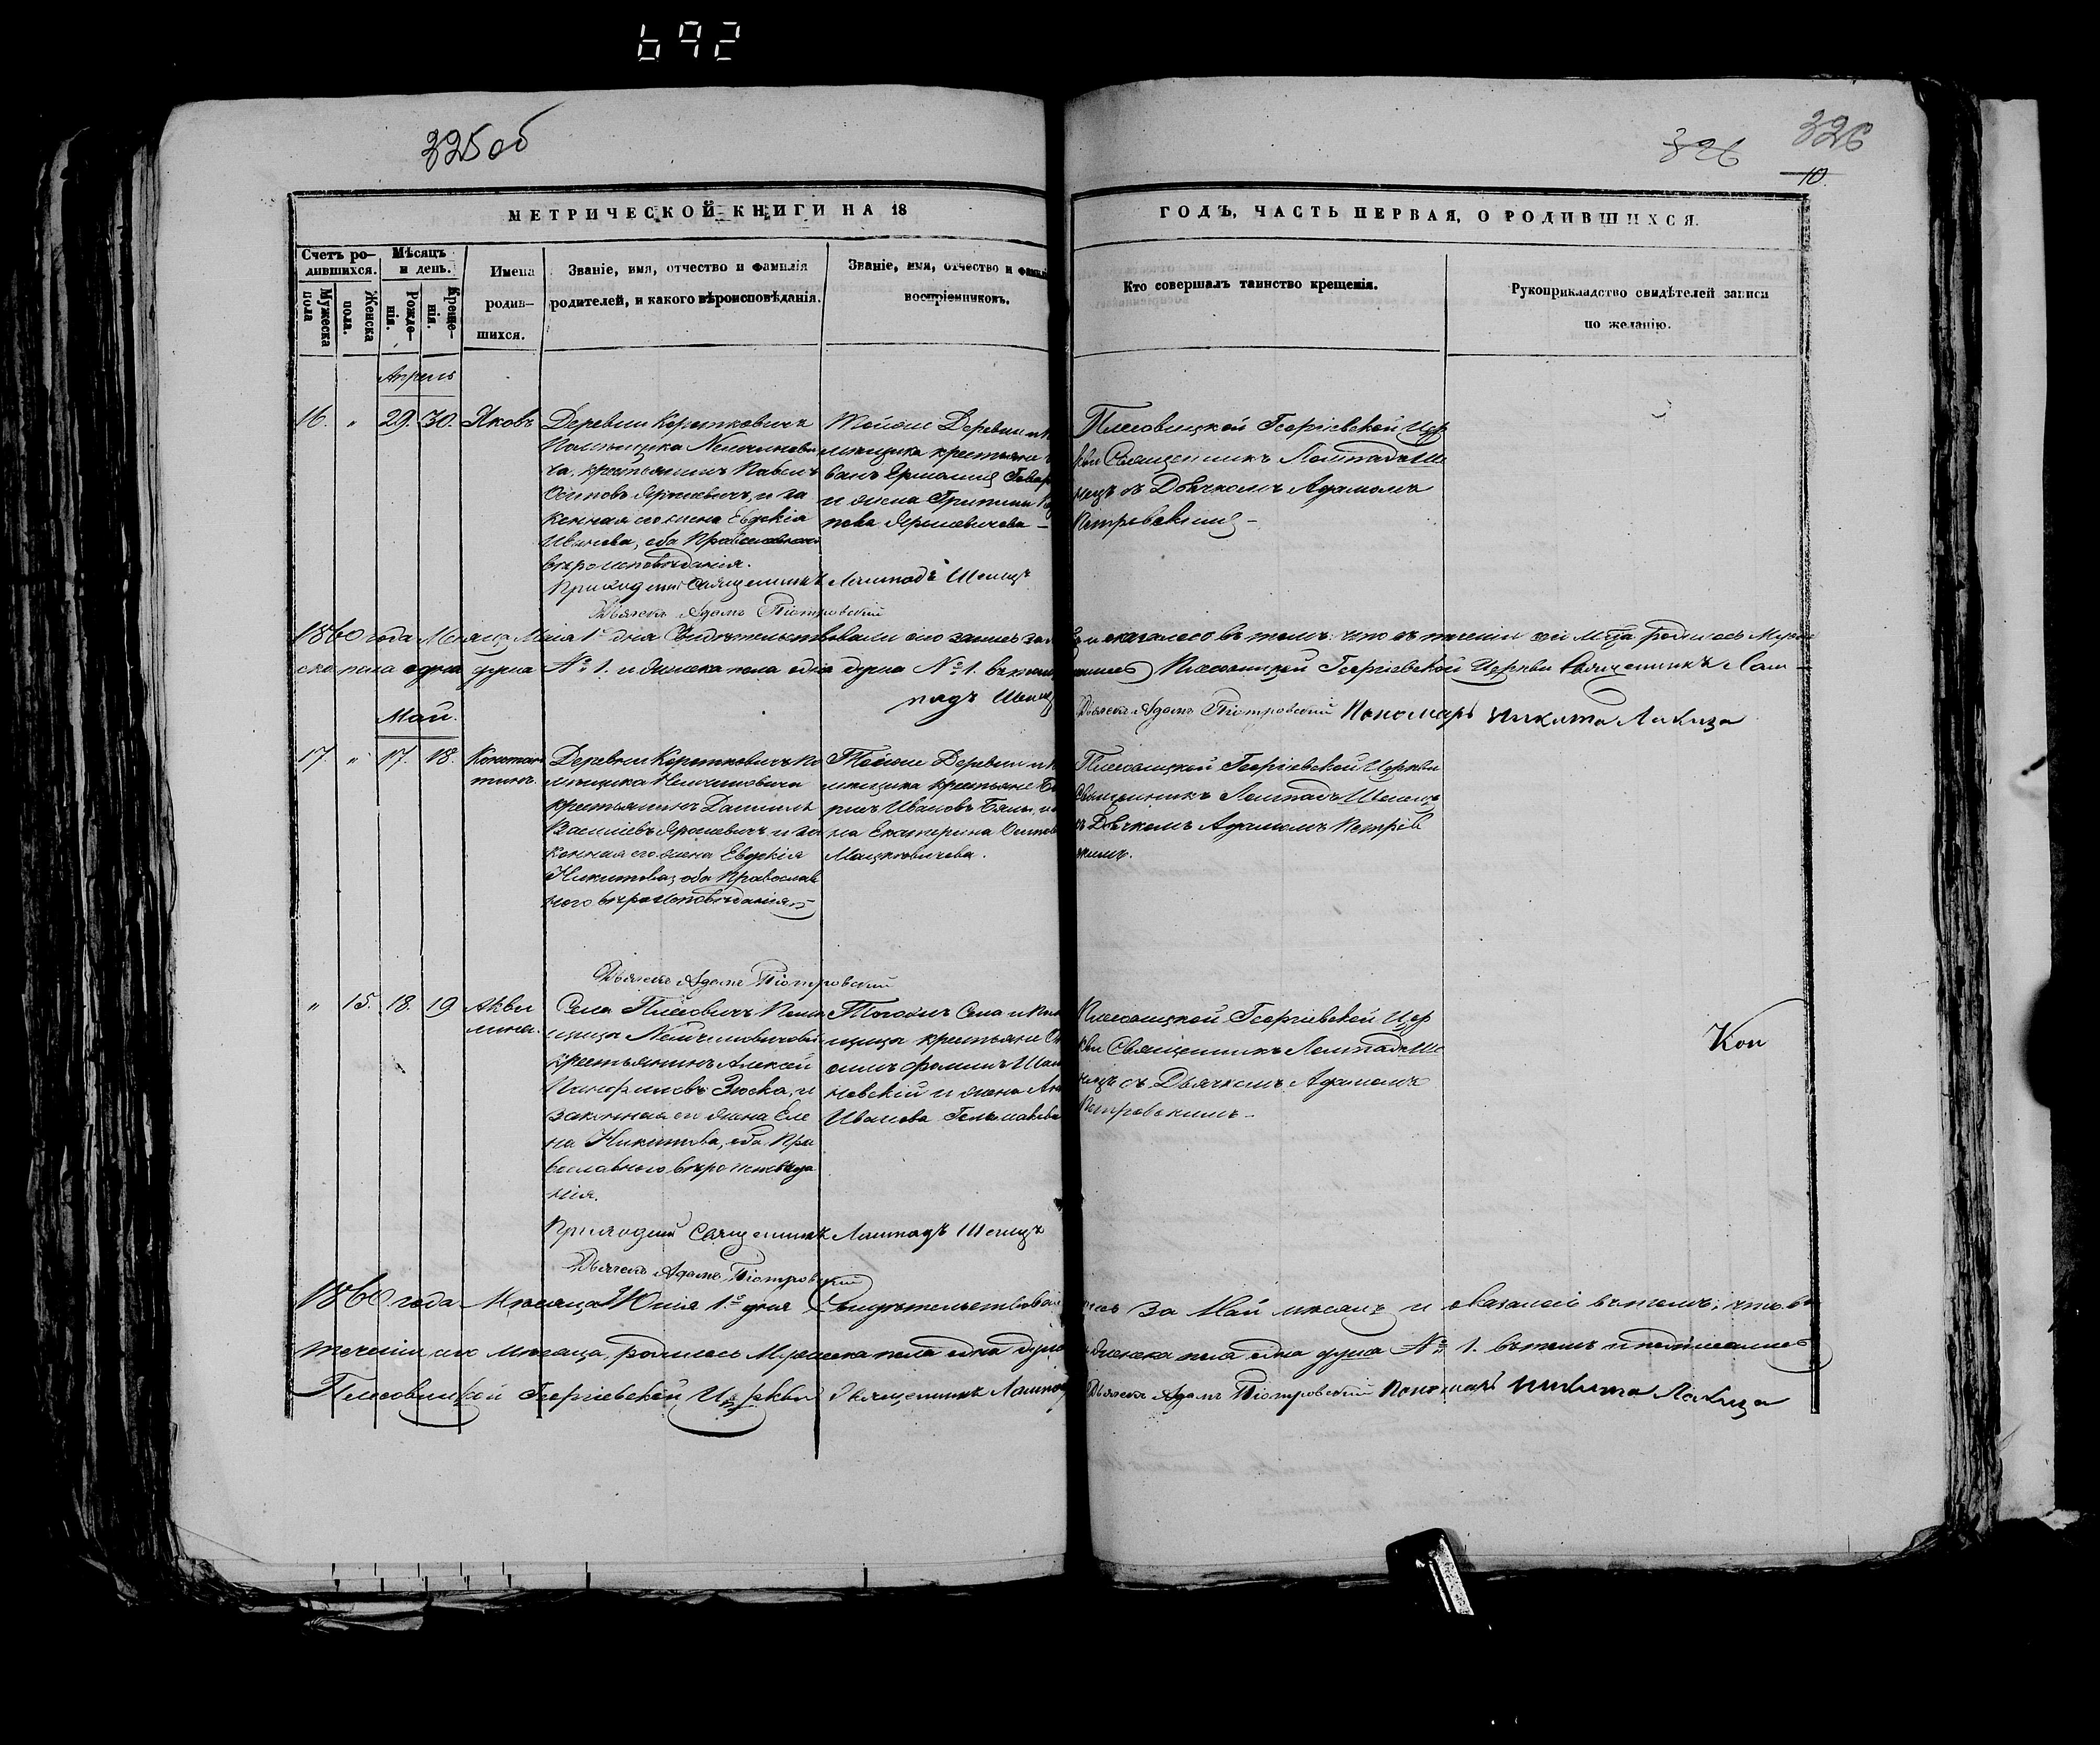 692
325об
326
326
10.
МЕТРИЧЕСКОЙ КНИГИ НА 18
ГОДЪ, ЧАСТЬ ПЕРВАЯ, О РОДИВШИХСЯ.
Счетъ ро-
дившихся.
Мужеска
пола
Женска
пола.
Мѣсяцъ
и день.
Рожде-
нія.
Креще-
нія.
Имена
родив-
шихся.
Званіе, имя, отчество и фамилія
родителей, и какого вѣроисповѣданія.
Званіе, имя, отчество и фамилі
воспріемниковъ.
Кто совершалъ таинство крещенія.
Рукоприкладство свидѣтелей записи
по желанію.
Апрель
16. " 29. 30. Яковъ
Деревни Короткевичъ
крестьянинъ Павелъ
Осиповъ Ярошевичъ, и за
конная его жена Евдокія
Иванова, оба Православнаго
вѣроисповѣданія.
Тойже Деревни и п
мѣщика крестьяне И
ванъ
и жена
пова Ярошевичова —
Георгіевской Цер
кви Священникъ Лампадъ Ше
нецъ съ Дьячкомъ Адамомъ
Петровскимъ —
Приходскій Священникъ Лампадъ Шенецъ
Дьячекъ Адамъ Піотровскій
1860 года Месяца Маія 1го дня Свидѣтельствовали сію запись за
и оказалось въ томъ: что въ теченіи сей мца родилось Муже
ска пола одна душа № 1. и женска пола одна душа № 1. въ томъ
Георгіевской Церкви Священникъ Лам-
падъ Шенецъ
Дьячекъ Адамъ Піотровскій Пономарь Никита Лакиза
Май.
17. " 17. 18. Констан
тинъ.
Деревни Короткевичъ по
мѣщика
крестьянинъ Даниилъ
Василіевъ Ярошевичъ и за
конная его жена Евдокія
Никитова, оба Православ
ного вѣроисповѣданія
Тойже Деревни и п
мѣщика крестьяне
Ивановъ
на Екатерина Осипов
Мацкевичова.
Георгіевской Церкви
Священникъ Лампадъ Шенецъ
съ Дьячкомъ Адамомъ Петров
скимъ.
Дьячекъ Адамъ Піотровскій
" 15. 18. 19 Акви
лина.
Села
крестьянинъ Алексей
законная его жена Еле
на Никитова, оба Пра
вославного вѣроисповѣда
нія.
Тогожъ Села и
мѣщица крестьяне
новскій и жена
Иванова
Георгіевской Цер
кви Священникъ Лампадъ Ше
нецъ съ Дьячкомъ Адамомъ
Петровскимъ —
Кон
Приходскій Священникъ Лампадъ Шенецъ
Дьячекъ Адамъ Піотровскій
1860 года Месяца Юнія 1го дня Свидѣтельствовал
за Май месяцъ и оказалось въ томъ; что въ
теченіи его месяца родилось Мужеска пола одна душа
женска пола одна душа № 1. въ томъ и подписались
Георгіевской Церкви Священникъ Лампадъ
Дьячекъ Адамъ Піотровскій Пономарь Никита Лакиза